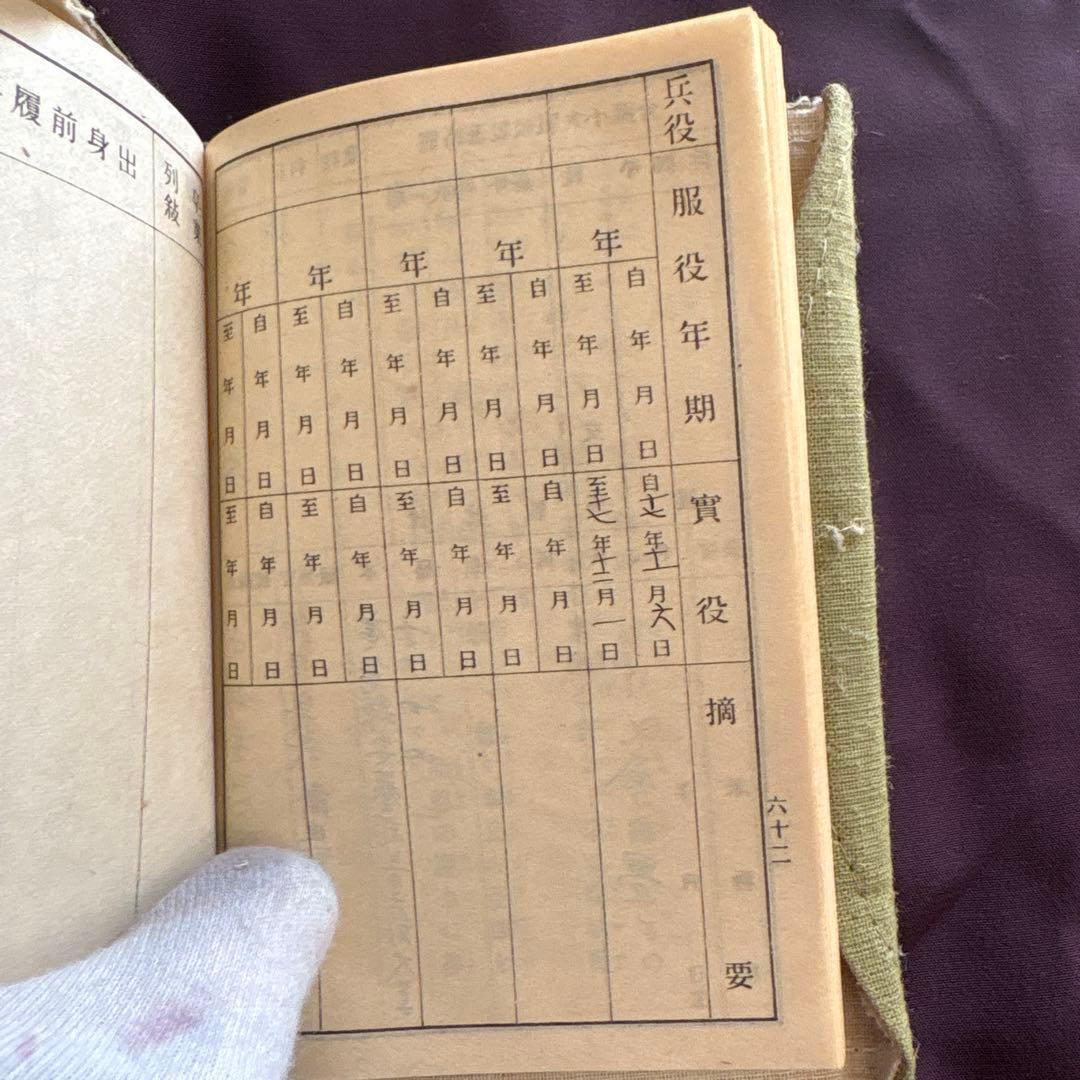 六十二
兵役 服役年期 實役 摘要
年
自 年 月 日 自十七年十一月六日
至 年 月 日 至十七年十二月一日
年
自 年 月 日 自 年 月 日
至 年 月 日 至 年 月 日
年
自 年 月 日 自 年 月 日
至 年 月 日 至 年 月 日
年
自 年 月 日 自 年 月 日
至 年 月 日 至 年 月 日
年
自 年 月 日 自 年 月 日
至 年 月 日 至 年 月 日
列敍
出身前履